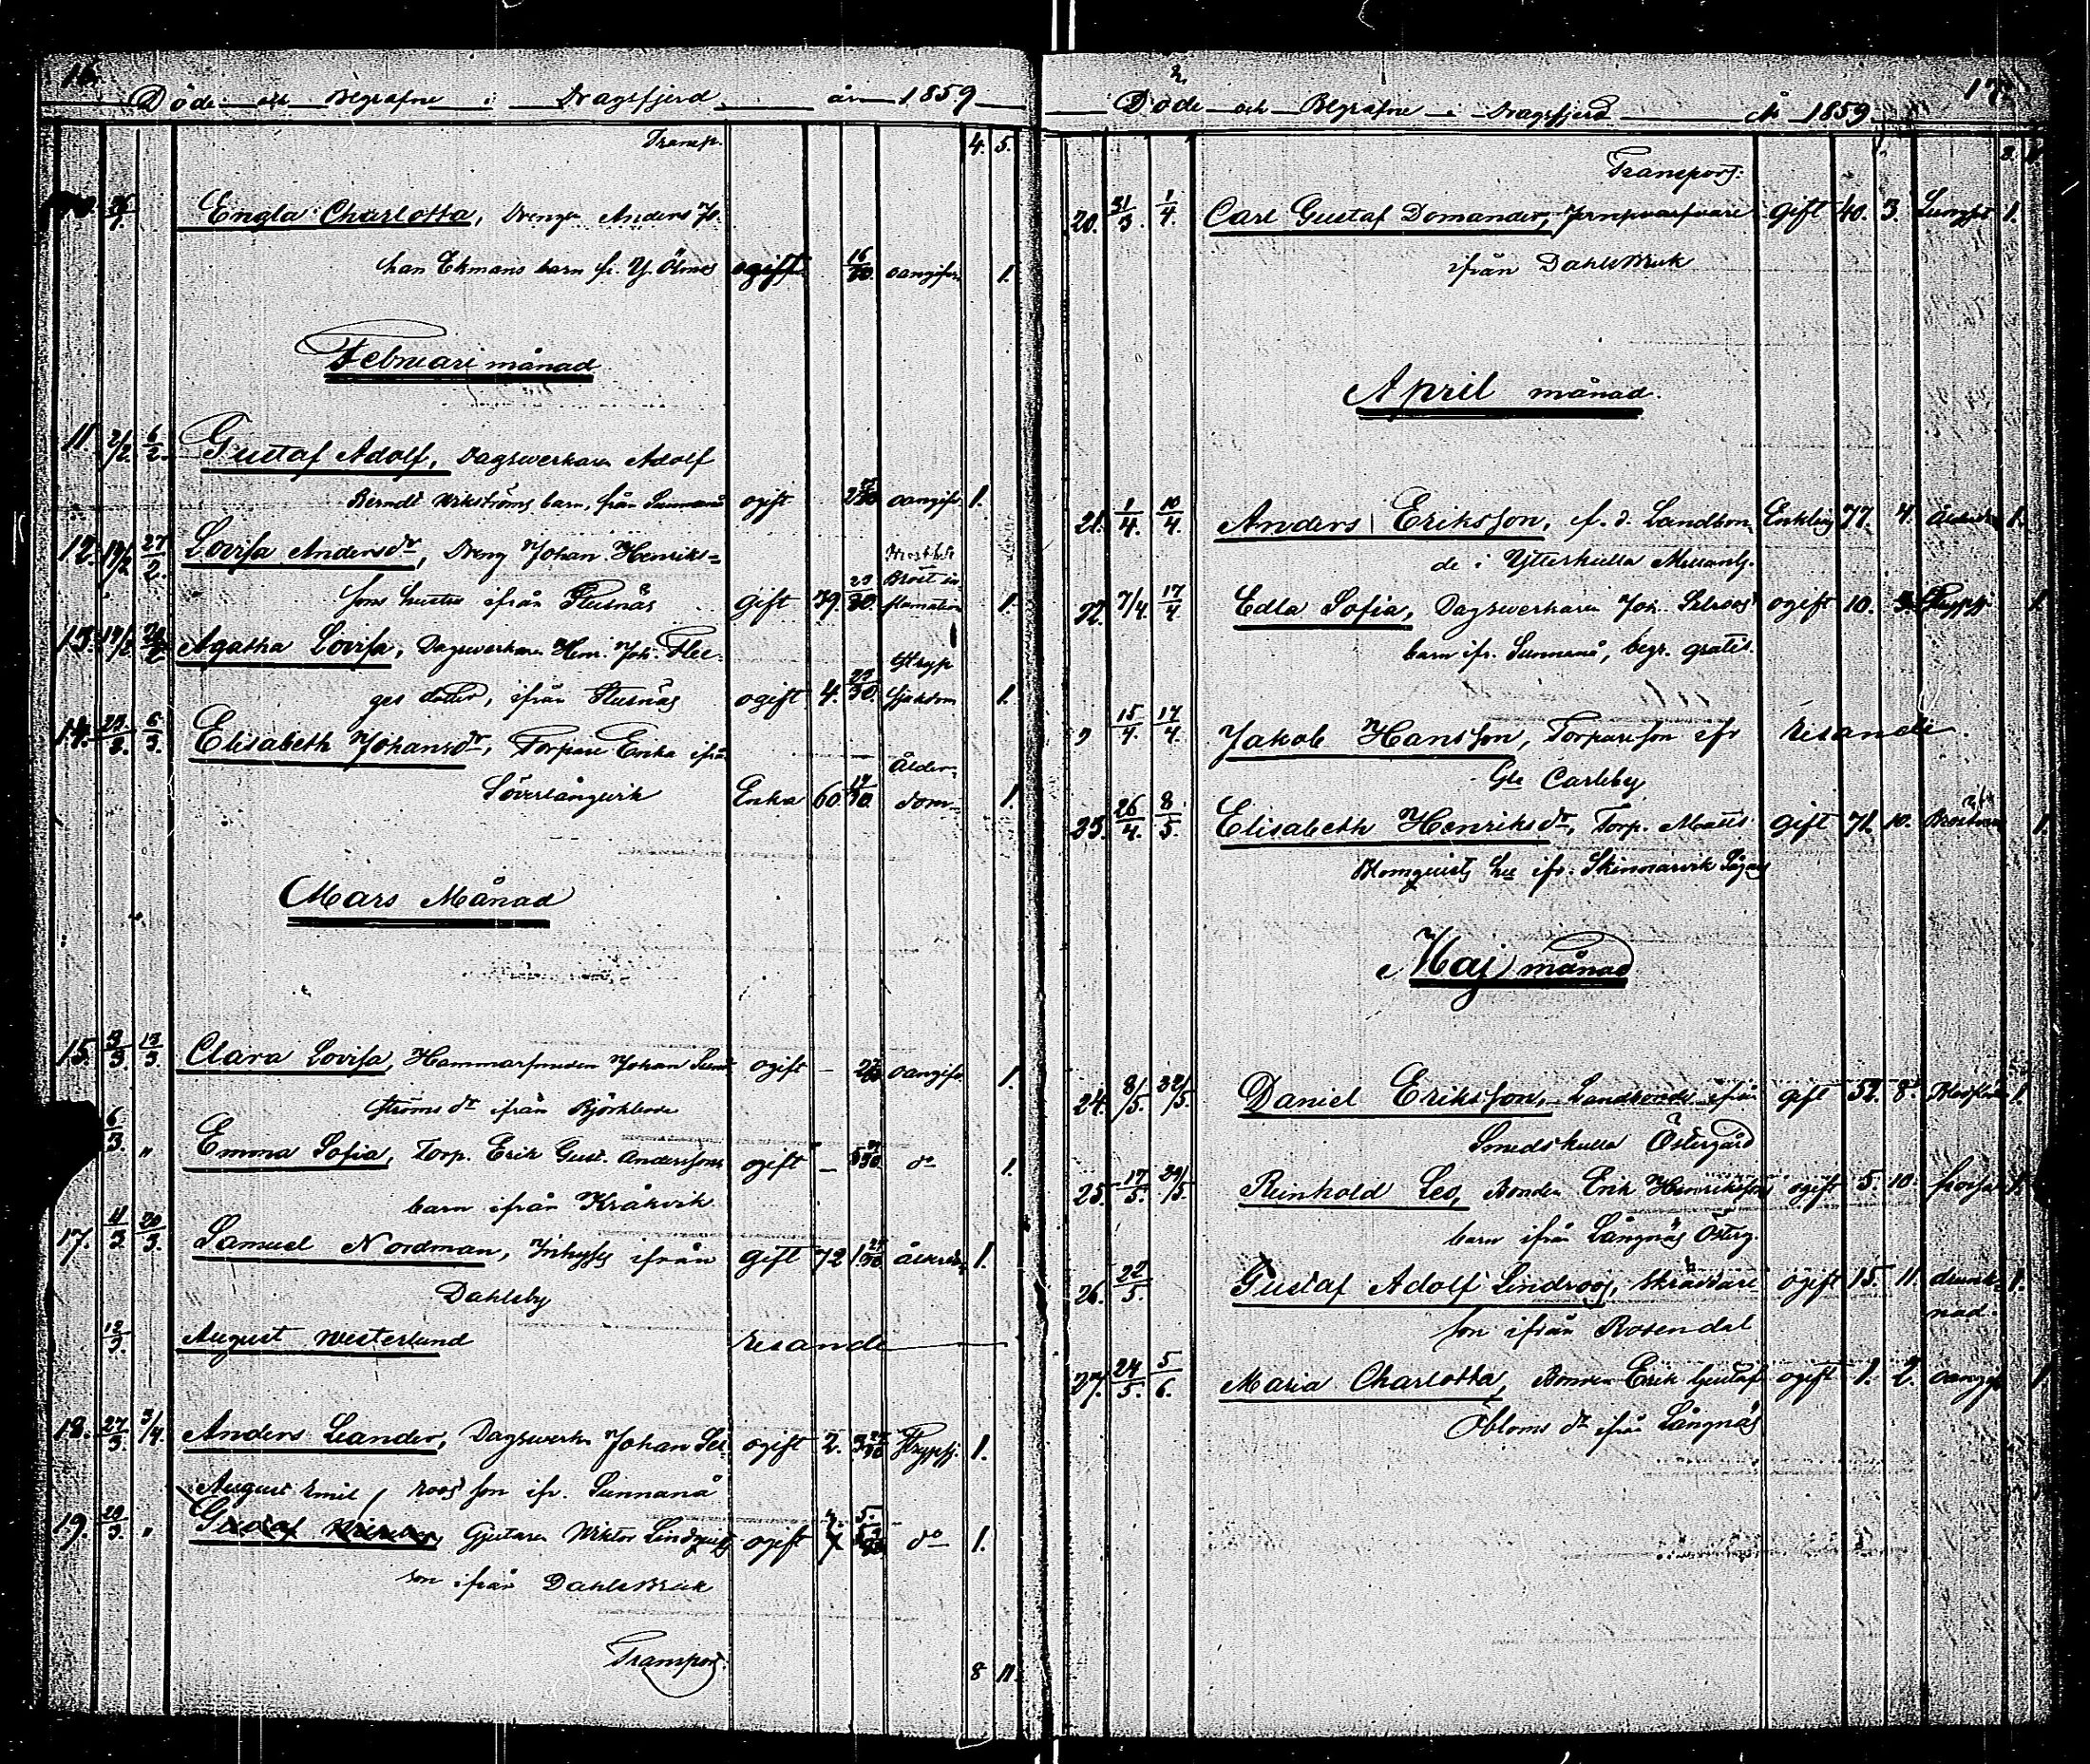 16.
Döde och Begrafne i Dragsfjerd år 1859
Transp. 4. 5.
Engla Charlotta, Drengen Anders Jo-
han Ekmans barn fr. Y. Ölmos ogift 16/30. oangifv. 1.
Februari månad
11. 2/2. 6/2. Gustaf Adolf, Dagsverkaren Adolf
Berndt Wikströms barn, från Sunnanå ogift oangifv. 1.
12. 19/2 27/2. Lovisa Andersdr, Dreng Johan Henriks-
sons hustru ifrån Flusnäs gift 39. 29/30. Bröst in
flamation 1.
13. 19/2 Agatha Lovisa, Dagsverkaren Henr. Joh. Flee-
ges dotter, ifrån Flusnäs ogift 4. 29/30. Stryp
sjukdom 1.
14. 5/3. Elisabeth Johansdr, Torpare Enka ifrån
Söverlångvik Enka 60. Ålder-
dom 1.
Mars Månad
15. 3/3. 13/3. Clara Lovisa, Hammarsmeden Johan Sund-
ströms dr ifrån Björkboda ogift — oangifv. 1.
6/3. " Emma Sofia, Torp. Erik Gust. Anderssons ogift — do 1.
barn ifrån Kråkvik
17. 11/3 20/3. Samuel Nordman, Inhyses ifrån gift 72 ålderdom 1.
Dahlsby
12/3 August Westerlund resande
18. 27/3 3/4. Anders Leander, Dagsverk. Johan Sel- ogift 2. Strypsj. 1.
roos son ifr. Sunnanå
August Emil
19. 29/3. " Gjutaren Wiktor Lindqvists ogift do 1.
son ifrån Dahlsbruk
Transport. 8 11.
17.
Döde och Begrafne i Dragsfjerd år 1859
Transport. 8.
20. 31/3. 1/4. Carl Gustaf Domander, gift 40. 3. Lungsot 1.
ifrån Dahlsbruk
April månad.
21. 1/4. 10/4. Anders Eriksson, f. d. Landbon- Enkling 77. 4. Ålderdom 1.
de i Ytterkulla Mellang.
22. 7/4. 17/4. Edla Sofia, Dagsverkaren Joh. Selroos ogift 10. Strypsj. 1.
barn ifr. Sunnanå, begr. gratis.
15/4. 17/4. Jakob Hansson, Torpareson ifr resande.
Gla Carleby
23. 26/4. 8/5. Elisabeth Henriksdr, Torp. Matts gift 71. 10. 1.
Blomqvists hu ifr. Skinnarvik Sågen
Maj månad
24. 8/5. 22/5. Daniel Eriksson, Landbonde ifrån gift 52. 8. 1.
Smedskulla Östergård
25. 17/5. 29/5. Reinhold Leo, Bonden Erik Henrikssons ogift 5. 10. frossa 1.
barn ifrån Långnäs Österg.
26. 22/5. Gustaf Adolf Lindroos, Skräddare- ogift 15. 11. drunk- 1.
son ifrån Rosendal nad.
27. 24/5. 5/6. Maria Charlotta, Bonden Erik Gustaf ogift 1. 2. oangifv. 1.
Öbloms dr ifrån Långnäs